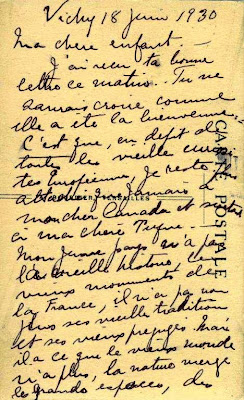 Vichy 18 Juin 1930
Ma chère enfant -
J'ai reçu ta bonne
lettre ce matin. Tu ne
saurais croire comme
elle a été la bienvenue
C'est que, en dépit de
toute les vieille
Européenne, Je reste
attaché Jamais à
mon cher Canada et
à ma chère
Mon Jeune pays n'a pas
la vieille histoire, les
vieux monuments de
la France, il n'a pas non
plus ses vieille tradition
et ses vieux préjugés mais
il a ce que le vieux monde
n'a plus, la nature vierge
le grand espaces, des
CARTE POSTALE